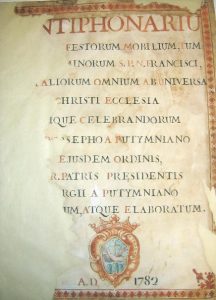 NTIPHONARIU
FESTORUM MOBILIUM, TUM
INORUM S.P.N. FRANCISCI,
ALIORUM OMNIUM AB UNIVERSA
CHRISTI ECCLESIA
IQUE CELEBRANDORUM
OSEPHO A PUTYMNIANO
EJUSDEM ORDINIS,
R. PATRIS PRESIDENTIS
RGII A PUTYMNIANO
UM, ATQUE ELABORATUM.
A.D. 1782